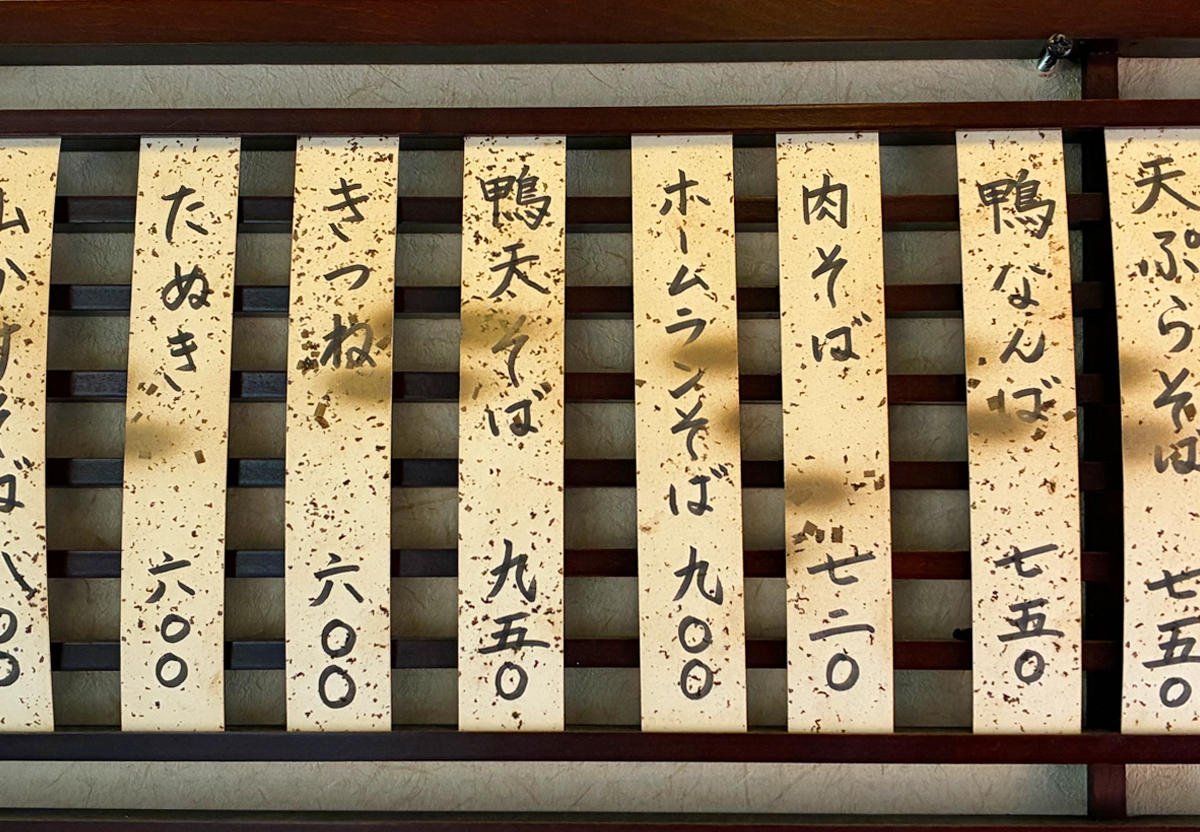 天ぷらそば 七五〇
鴨なんば 七五〇
肉そば 七二〇
ホームランそば 九〇〇
鴨天そば 九五〇
きつね 六〇〇
たぬき 六〇〇
そば 八〇〇